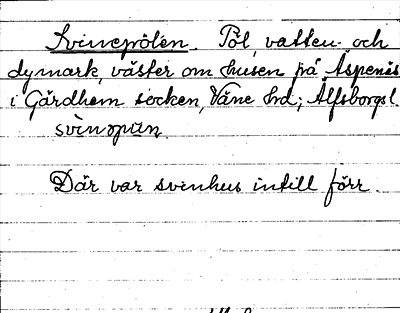 Svinepölen. Pöl, vatten- och
dymark, väster om husen på Äspenäs
i Gärdhem socken, Väne hd; Älfsborgs l.
Där var svinhus intill förr.